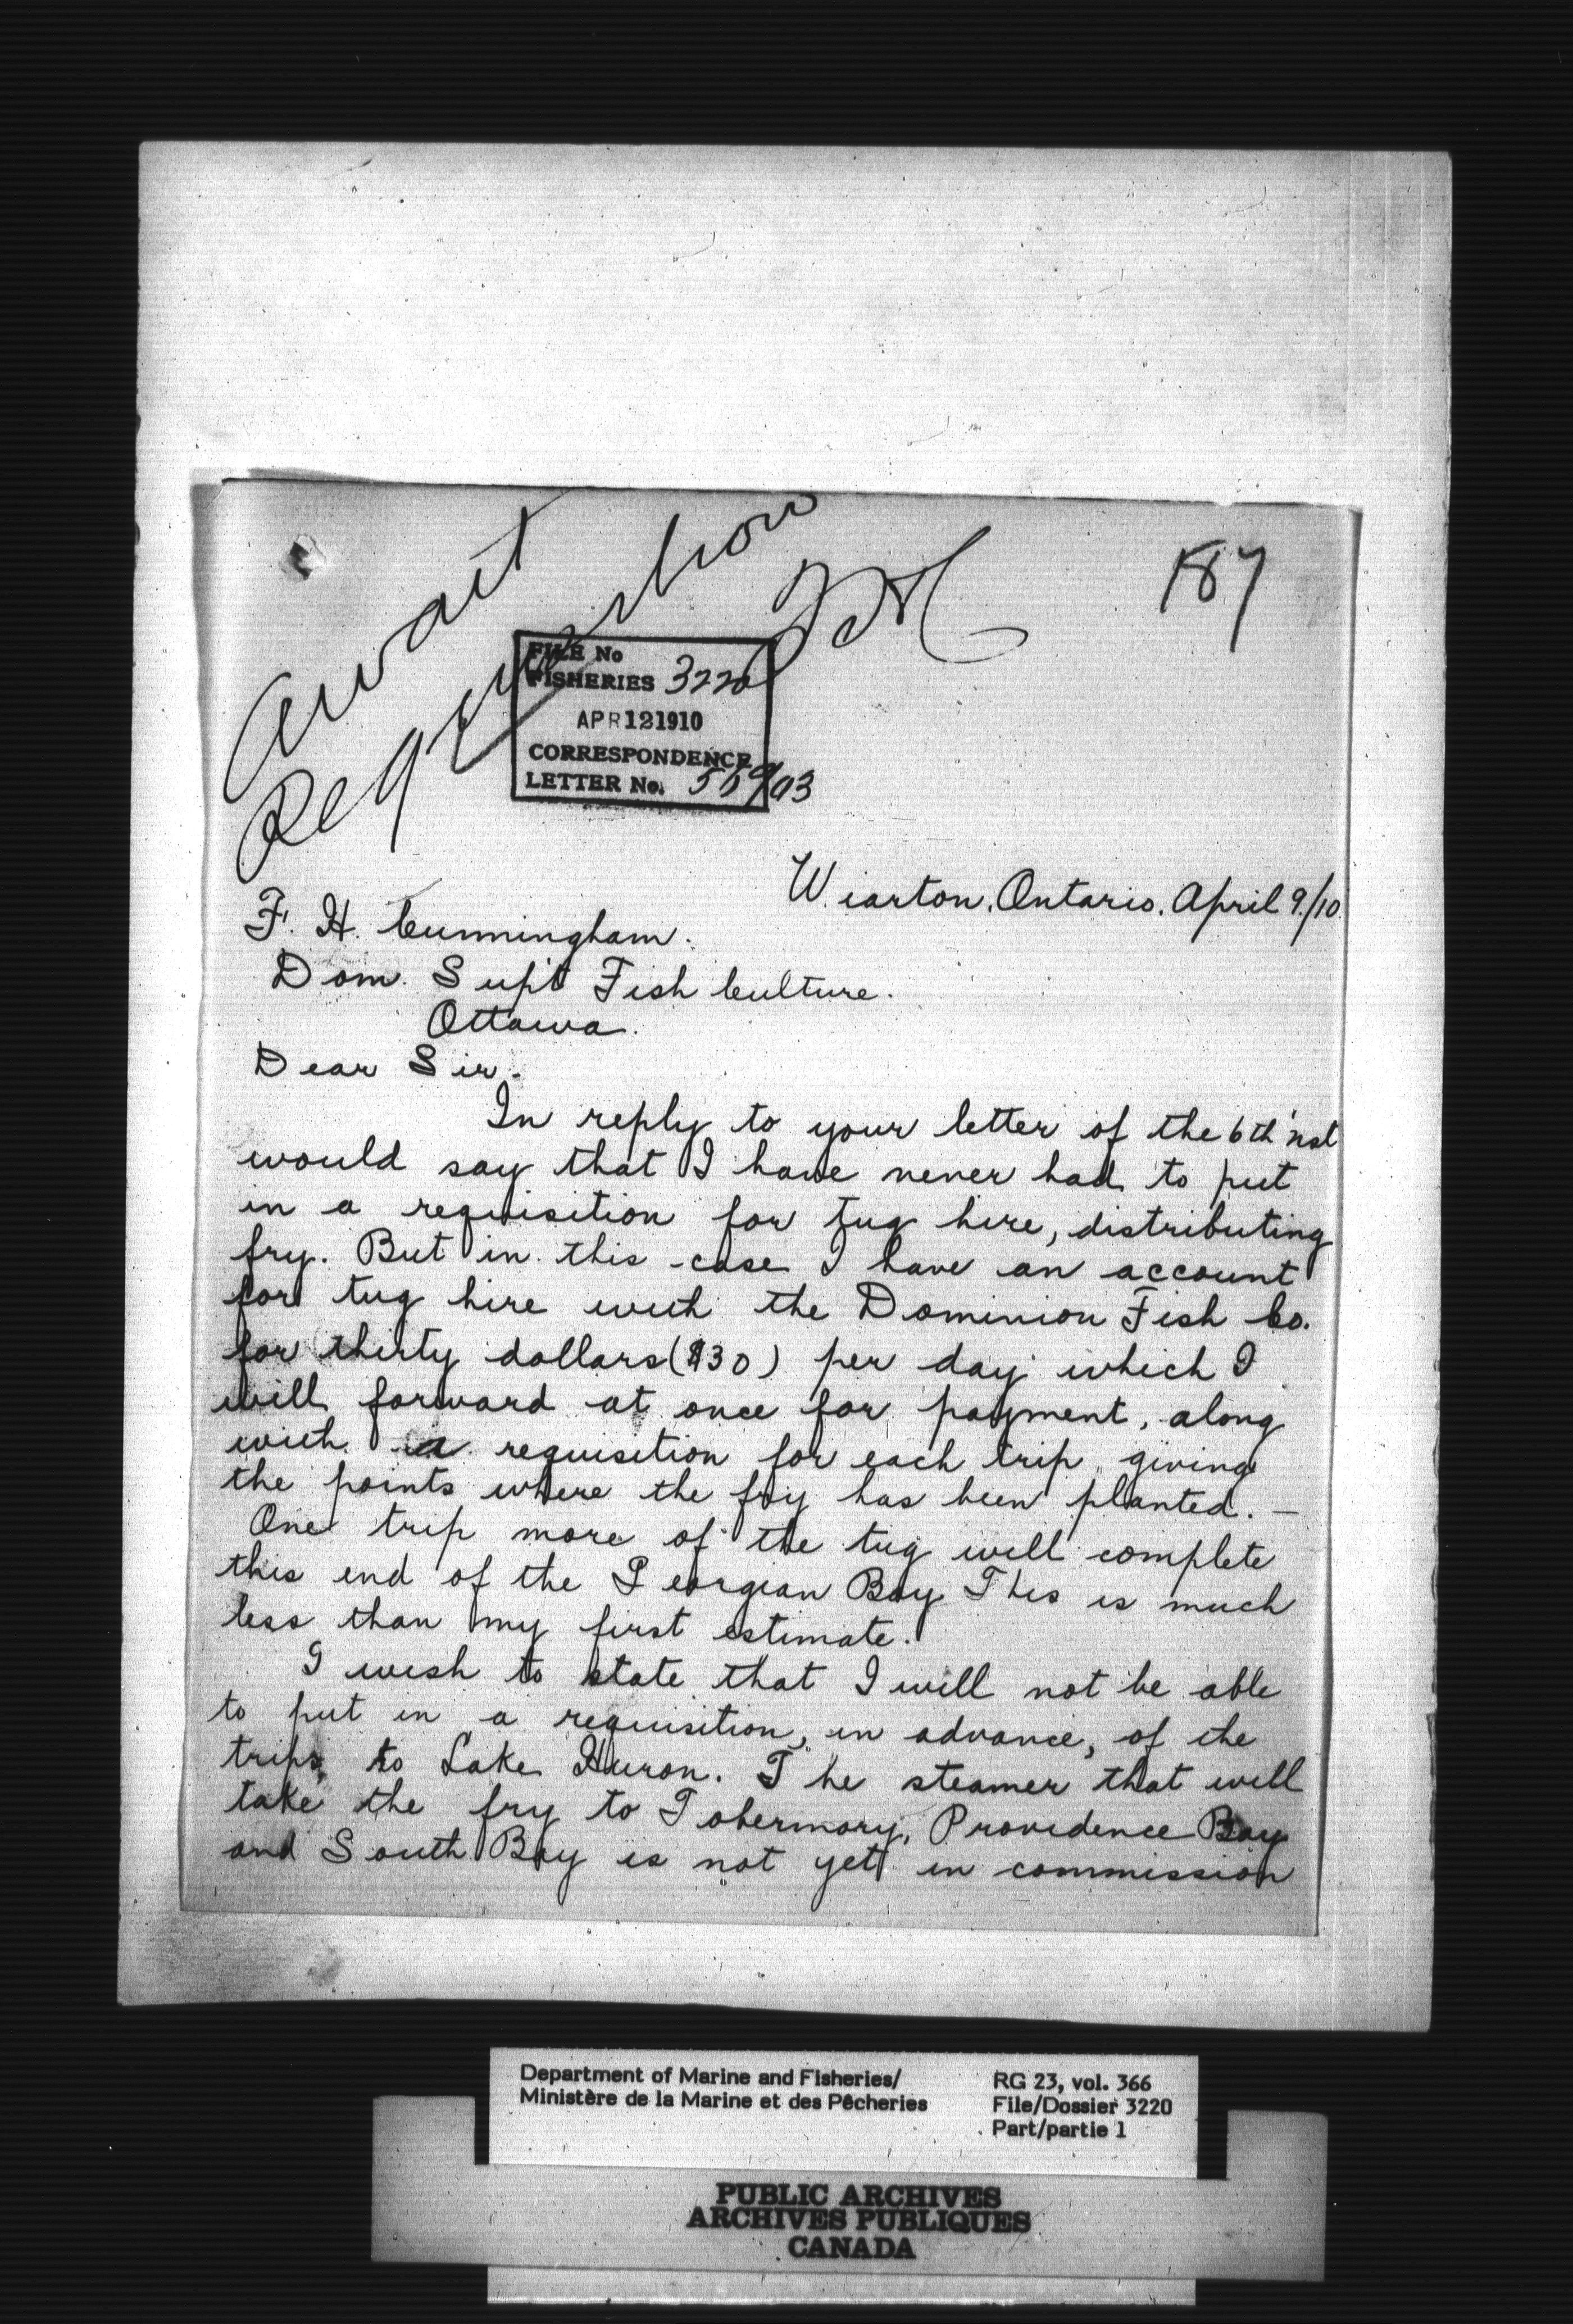 Await
Requisition
187
FILE No
FISHERIES 3220
APR 12 1910
CORRESPONDENCE
LETTER No.
Wiarton, Ontario, April 9/10
F. H. Cunningham.
Dom. Sup't Fish Culture.
Ottawa.
Dear Sir.
In reply to your letter of the 6th inst
would say that I have never had to put
in a requisition for tug hire, distributing
fry. But in this case I have an account
for tug hire with the Dominion Fish Co.
for thirty dollars ($30) per day which I
will forward at once for payment, along
with a requisition for each trip giving
the points where the fry has been planted. —
One trip more of the tug will complete
this end of the Georgian Bay This is much
less than my first estimate.
I wish to state that I will not be able
to put in a requisition, in advance, of the
trips, to Lake Huron. The steamer that will
take the fry to Tobermory, Providence Bay
and South Bay is not yet in commission
Department of Marine and Fisheries/
Ministère de la Marine et des Pêcheries
RG 23, vol. 366
File/Dossier 3220
Part/partie 1
PUBLIC ARCHIVES
ARCHIVES PUBLIQUES
CANADA